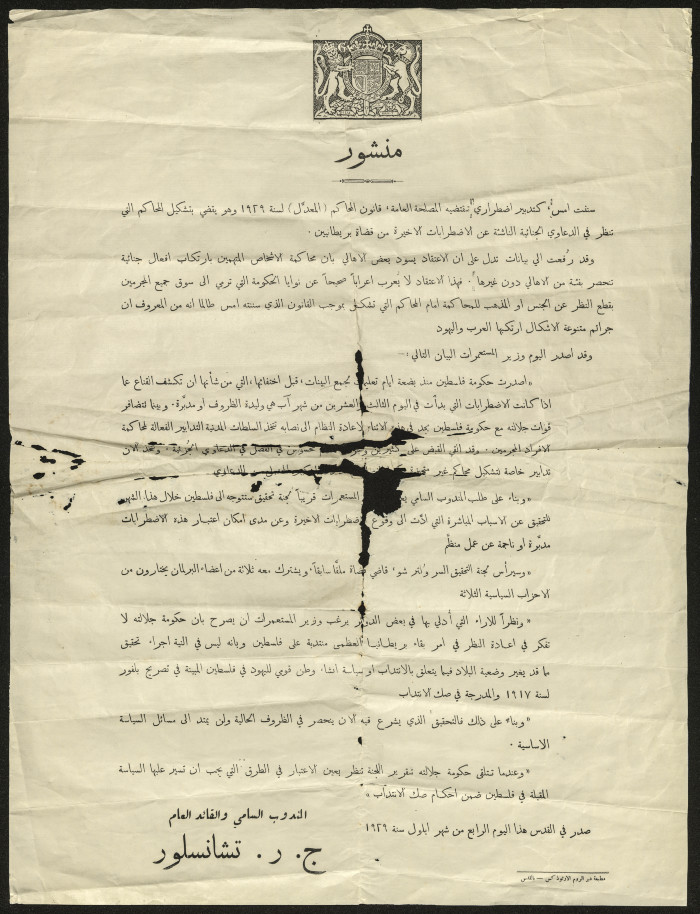 منشور
سننت امس، كتدبير اضطراري تقتضيه المصلحة العامة، قانون المحاكم (المعدّل) لسنة ١٩٢٩ وهو يقضي بتشكيل المحاكم التي
تنظر في الدعاوي الجنائية الناشئة عن الاضطرابات الاخيرة من قضاة بريطانيين ٠
وقد رُفعت الي بيانات تدل على ان الاعتقاد يسود بعض الاهالي بان محاكمة الاشخاص المتهمين بارتكاب افعال جنائية
تنحصر بفئة من الاهالي دون غيرها. فهذا الاعتقاد لا يُعرب اعراباً صحيحاً عن نوايا الحكومة التي ترمي الى سوق جميع المجرمين
بقطع النظر عن الجنس او المذهب للمحاكمة امام المحاكم التي تشكل بموجب القانون الذي سننته امس طالما انه من المعروف ان
جرائم متنوعة الاشكال ارتكبها العرب واليهود
وقد اصدر اليوم وزير المستعمرات البيان التالي :—
« اصدرت حكومة فلسطين منذ بضعة ايام تعليمات بجمع البينات، قبل اختفائها، التي من شأنها ان تكشف القناع عما
اذا كانت الاضطرابات التي بدأت في اليوم الثالث والعشرين من شهر آب هي وليدة الظروف او مدبّرة. وبينما تتضافر
قوات جلالته مع حكومة فلسطين في هذه الاثناء لاعادة النظام الى نصابه تتخذ السلطات المدنية التدابير الفعالة لمحاكمة
الافراد المجرمين. وقد القي القبض على كثيرين في الفصل في الدعاوي الجزئية. وتتخذ الآن
تدابير خاصة لتشكيل محاكم غير
« وبناء على طلب المندوب السامي المستعمرات قريباً لجنة تحقيق ستتوجه الى فلسطين خلال هذا الشهر
للتحقيق عن الاسباب المباشرة التي ادّت الى وقوع الاضطرابات الاخيرة وعن مدى امكان اعتبار هذه الاضطرابات
مدبّرة او ناجمة عن عمل منظّم
« وسيرأس لجنة التحقيق السر وُلتر شو، قاضي قضاة ملقّا سابقاً، ويشترك معه ثلاثة من اعضاء البرلمان يختارون من
الاحزاب السياسية الثلاثة
« ونظراً للآراء التي أُدلي بها في بعض الدوائر يرغب وزير المستعمرات ان يصرح بان حكومة جلالته لا
تفكر في اعادة النظر في امر بقاء بريطانيا العظمى منتدبة على فلسطين وبانه ليس في النية اجراء تحقيق
ما قد يغير وضعية البلاد فيما يتعلق بالانتداب او سياسة انشاء وطن قومي لليهود في فلسطين المبينة في تصريح بلفور
لسنة ١٩١٧ والمدرجة في صك الانتداب
« وبناء على ذلك فالتحقيق الذي يشرع فيه الآن ينحصر في الظروف الحالية ولن يمتد الى مسائل السياسة
الاساسية ٠
« وعندما تتلقى حكومة جلالته تقرير اللجنة تنظر بعين الاعتبار في الطرق التي يجب ان تسير عليها السياسة
المقبلة في فلسطين ضمن احكام صك الانتداب »
المندوب السامي والقائد العام
صدر في القدس هذا اليوم الرابع من شهر ايلول سنة ١٩٢٩
ج. ر. تشانسلور
مطبعة دير الروم الارثوذكس — بالقدس